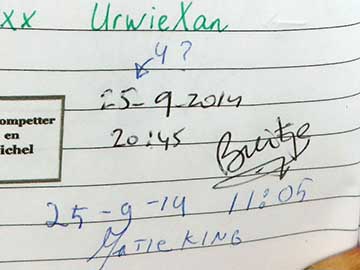 xx UrwieXan
4?
25-9-2014
ompetter
en
ichel
20:45
25-9-14 11:05
KING